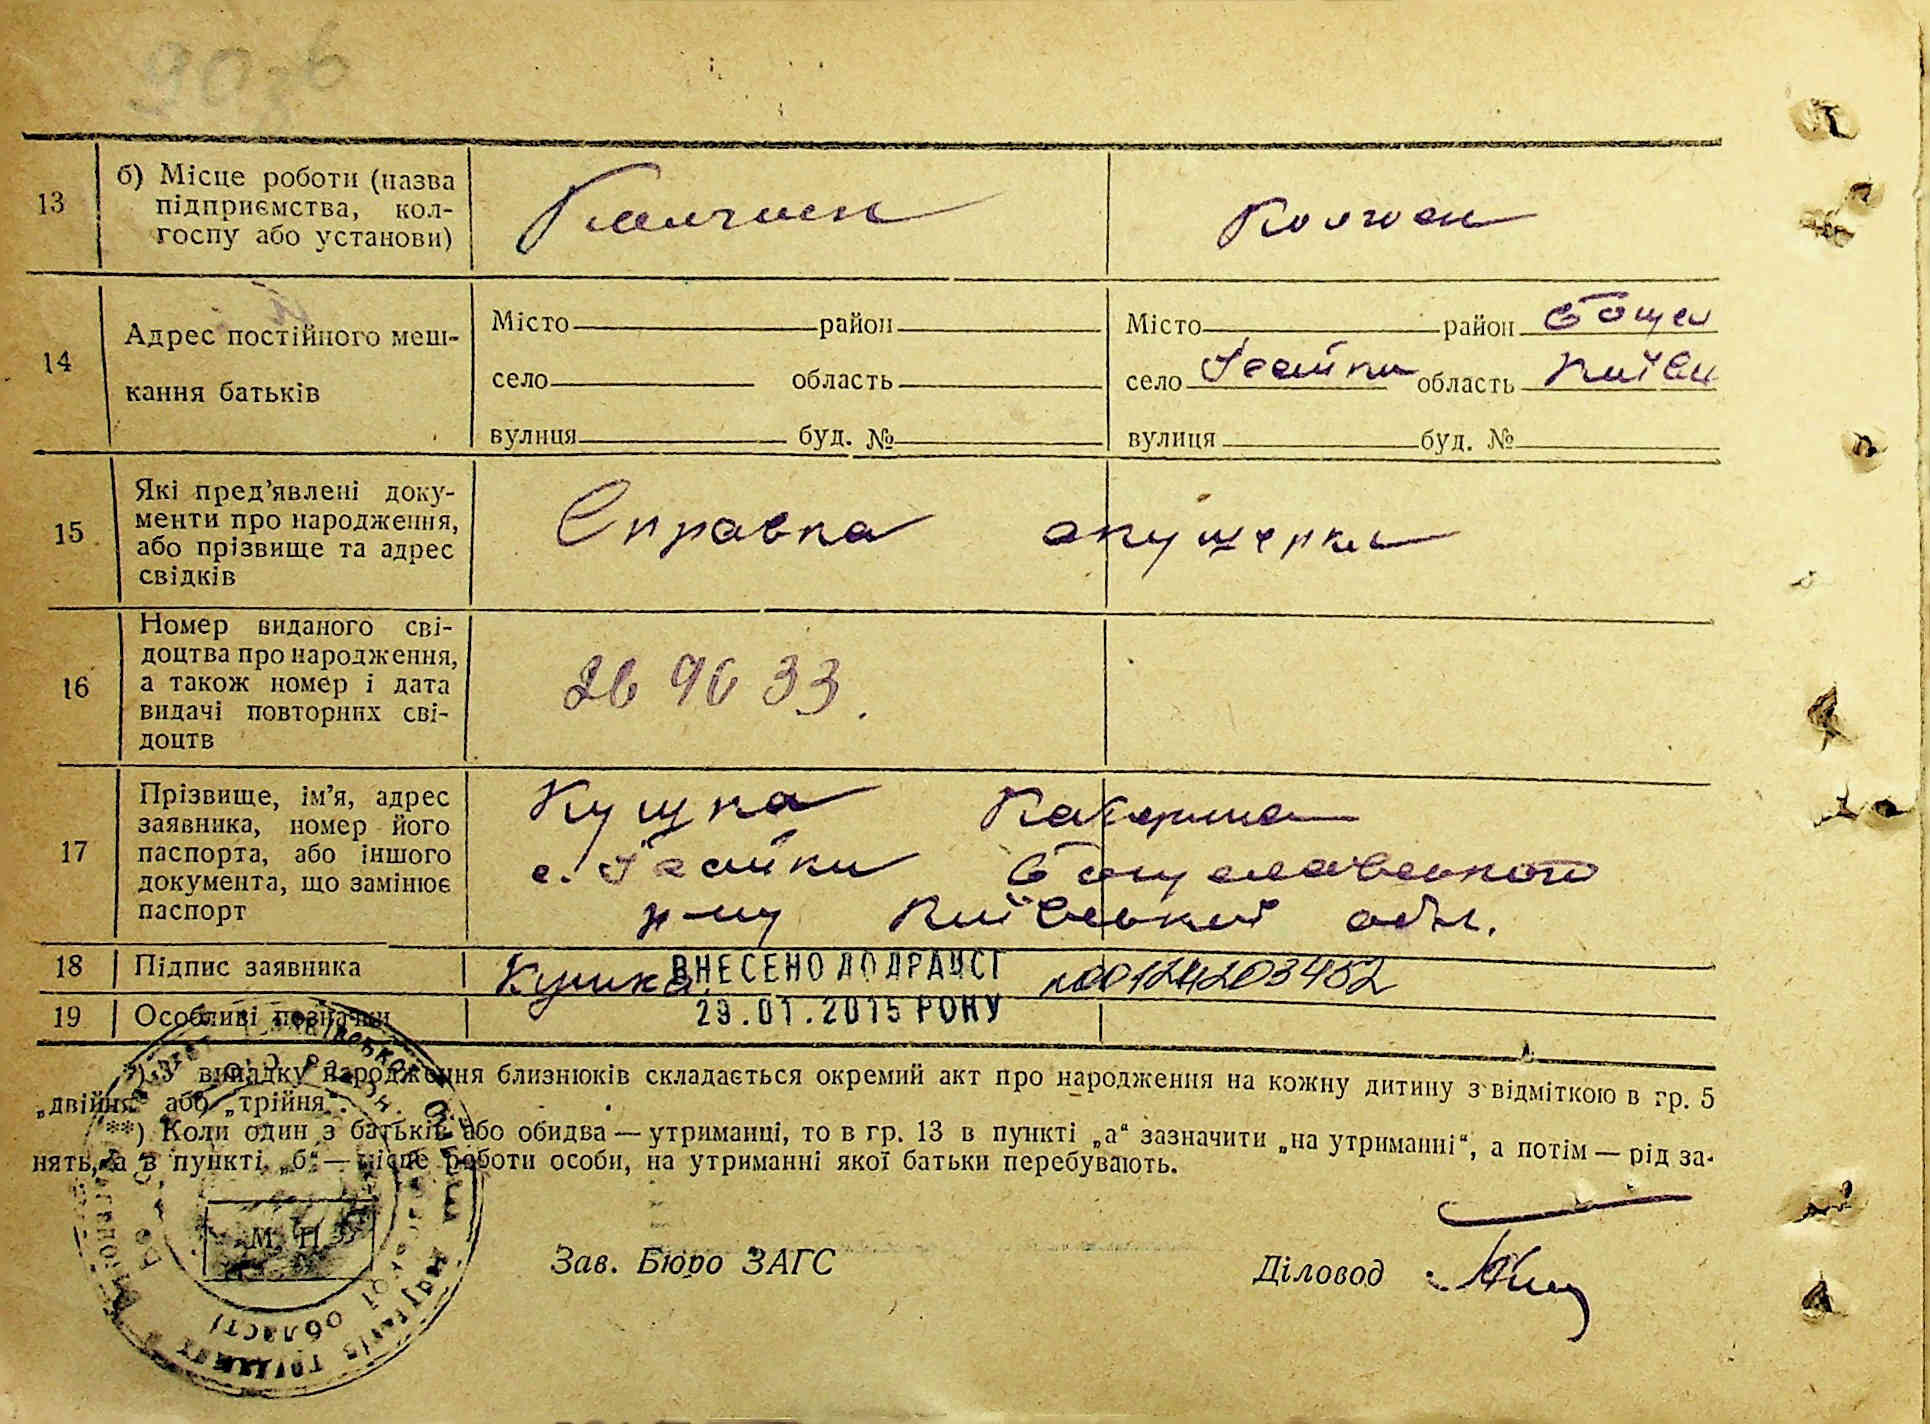 13 б) Місце роботи (назва підприємства, кол-
госпу або установи) Колгосп Колгосп
14 Адрес постійного меш-
кання батьків
Місто район Місто район Богусл
село область село Ісайки область Київськ
вулиця буд. № вулиця буд. №
15 Які пред'явлені доку-
менти про народження,
або прізвище та адрес
свідків
Справка акушерки
16 Номер виданого сві-
доцтва про народження,
а також номер і дата
видачі повторних сві-
доцтв
269633.
17 Прізвище, ім'я, адрес
заявника, номер його
паспорта, або іншого
документа, що замінює
паспорт
Кушка Катерина
с. Ісайки Богуславського
р-ну Київської обл.
18 Підпис заявника Кушка ВНЕСЕНО ДО ДРАЦСГ №00124203452
19 Особливі позначки 29.01.2015 РОКУ
*) У випадку народження близнюків складається окремий акт про народження на кожну дитину з відміткою в гр. 5
„двійня“ або „трійня“.
**) Коли один з батьків або обидва — утриманці, то в гр. 13 в пункті „а“ зазначити „на утриманні“, а потім — рід за-
нять, а в пункті „б“ — місце роботи особи, на утриманні якої батьки перебувають.
М. П.
Зав. Бюро ЗАГС Діловод
ОБЛАСТІ